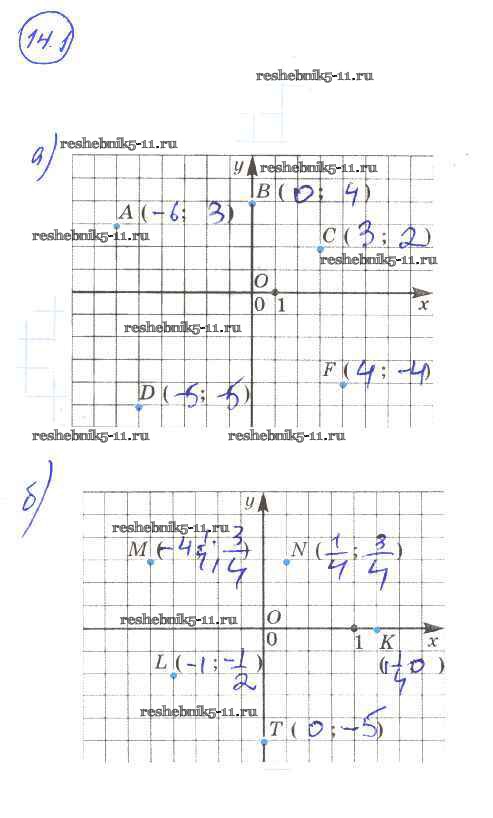 14.1
reshebnik5-11.ru
а) reshebnik5-11.ru
y reshebnik5-11.ru
B (0; 4)
A (-6; 3)
reshebnik5-11.ru
C (3; 2)
reshebnik5-11.ru
O
0 1 x
reshebnik5-11.ru
F (4; -4)
D (-5; -5)
reshebnik5-11.ru reshebnik5-11.ru
б)
y
reshebnik5-11.ru
M N (1/4; 3/4)
reshebnik5-11.ru
O
0 1 K x
L (-1; -1/2) (1 1/4 0)
reshebnik5-11.ru
T (0; -5)